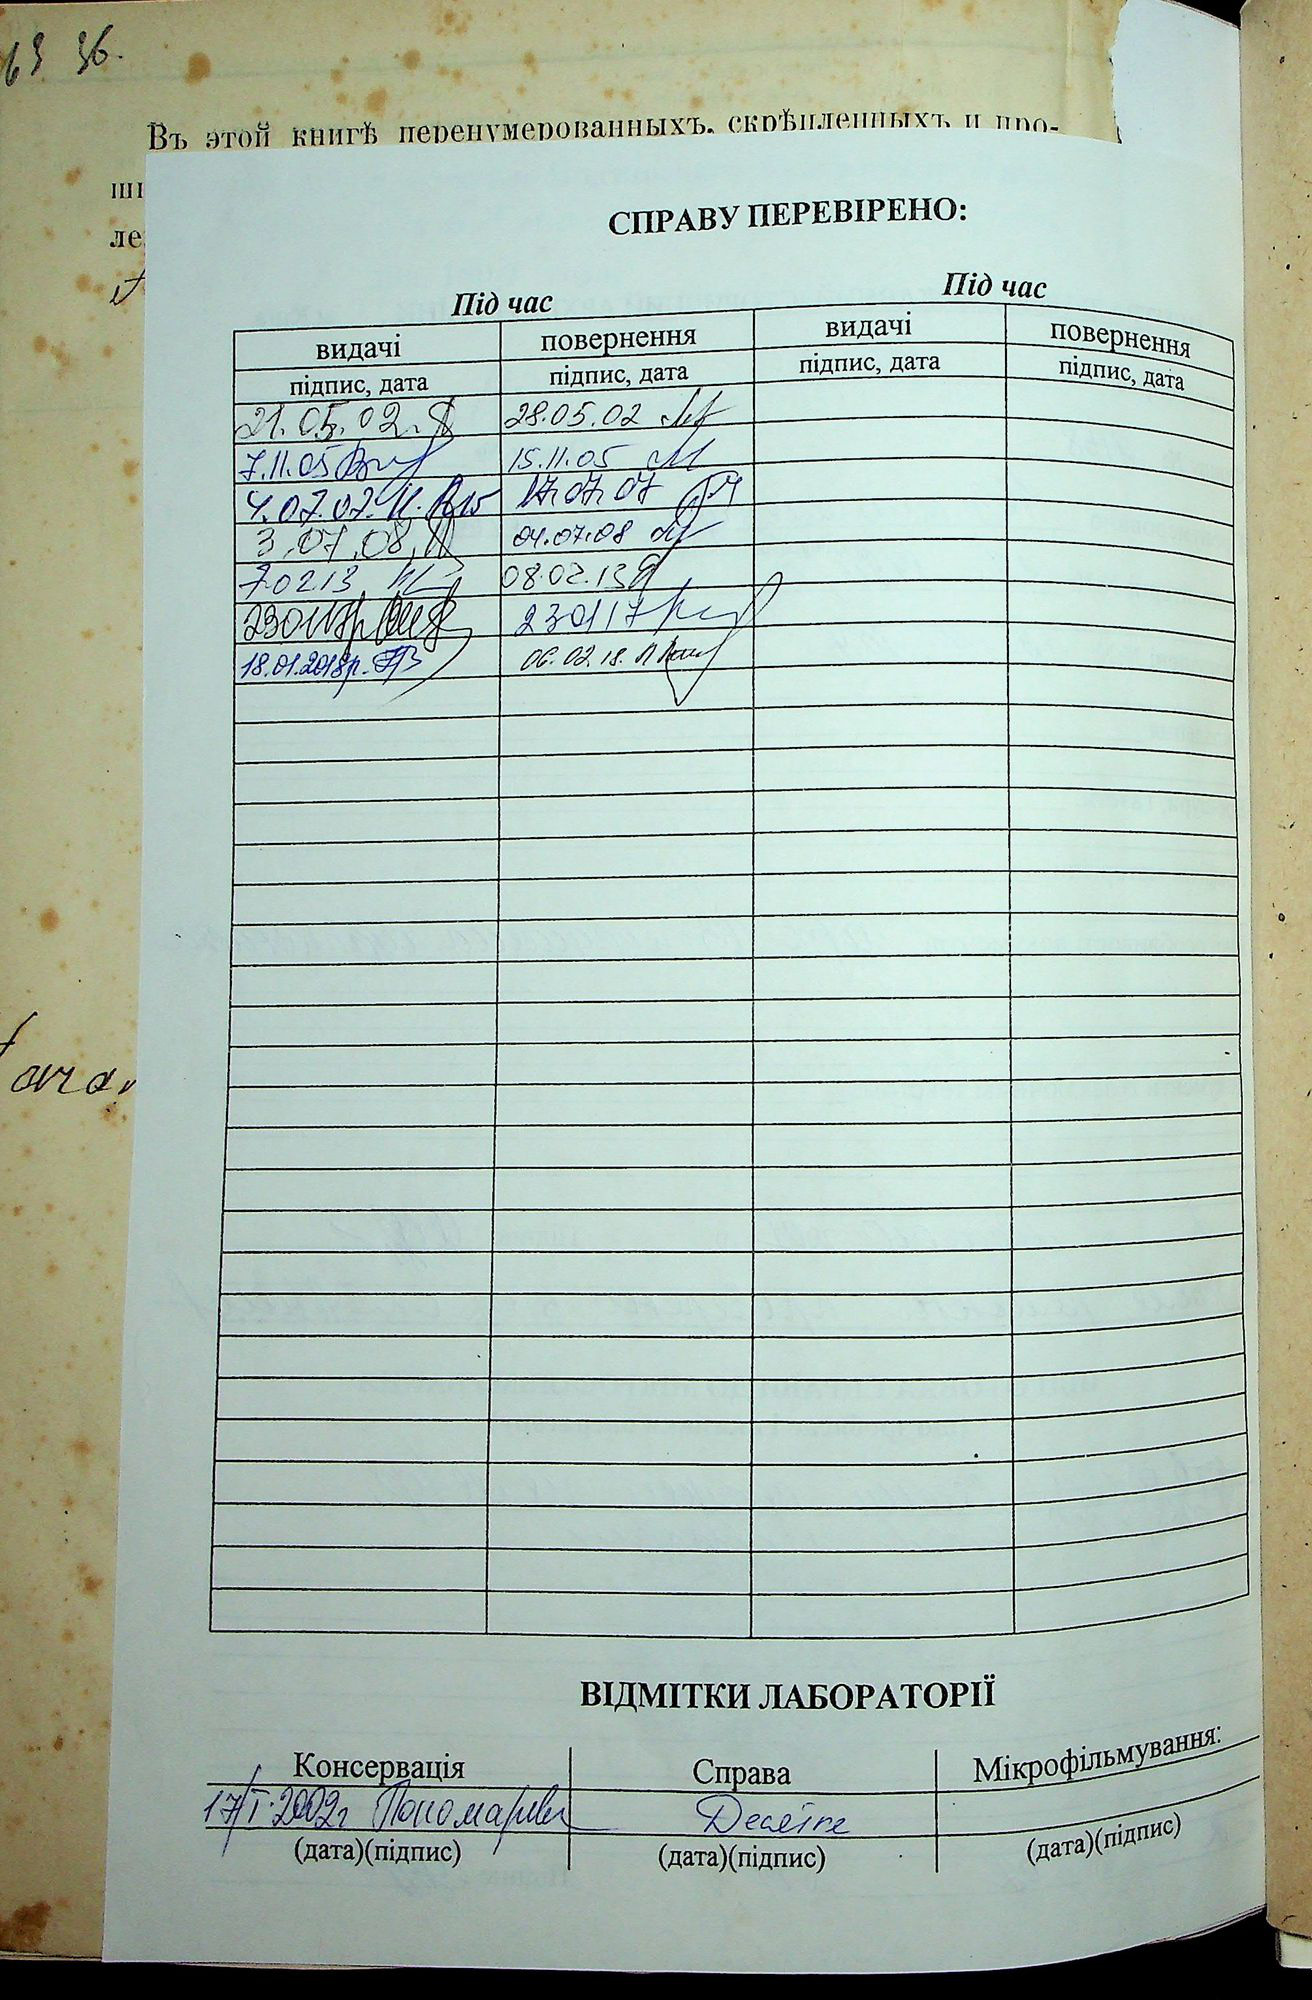 63 36.
Въ этой книгѣ перенумерованныхъ, скрѣпленныхъ и про-
ши
ле
СПРАВУ ПЕРЕВІРЕНО:
Під час Під час
видачі повернення видачі повернення
підпис, дата підпис, дата підпис, дата підпис, дата
21.05.02. 28.05.02
7.11.05 15.11.05
4.07.07. 17.07.07
3.07.08. 04.07.08
7.02.13 08.02.13
230117р 230117
18.01.2018р. 06.02.18.
ВІДМІТКИ ЛАБОРАТОРІЇ
Консервація Справа Мікрофільмування:
17/I.2002г
(дата)(підпис) (дата)(підпис) (дата)(підпис)